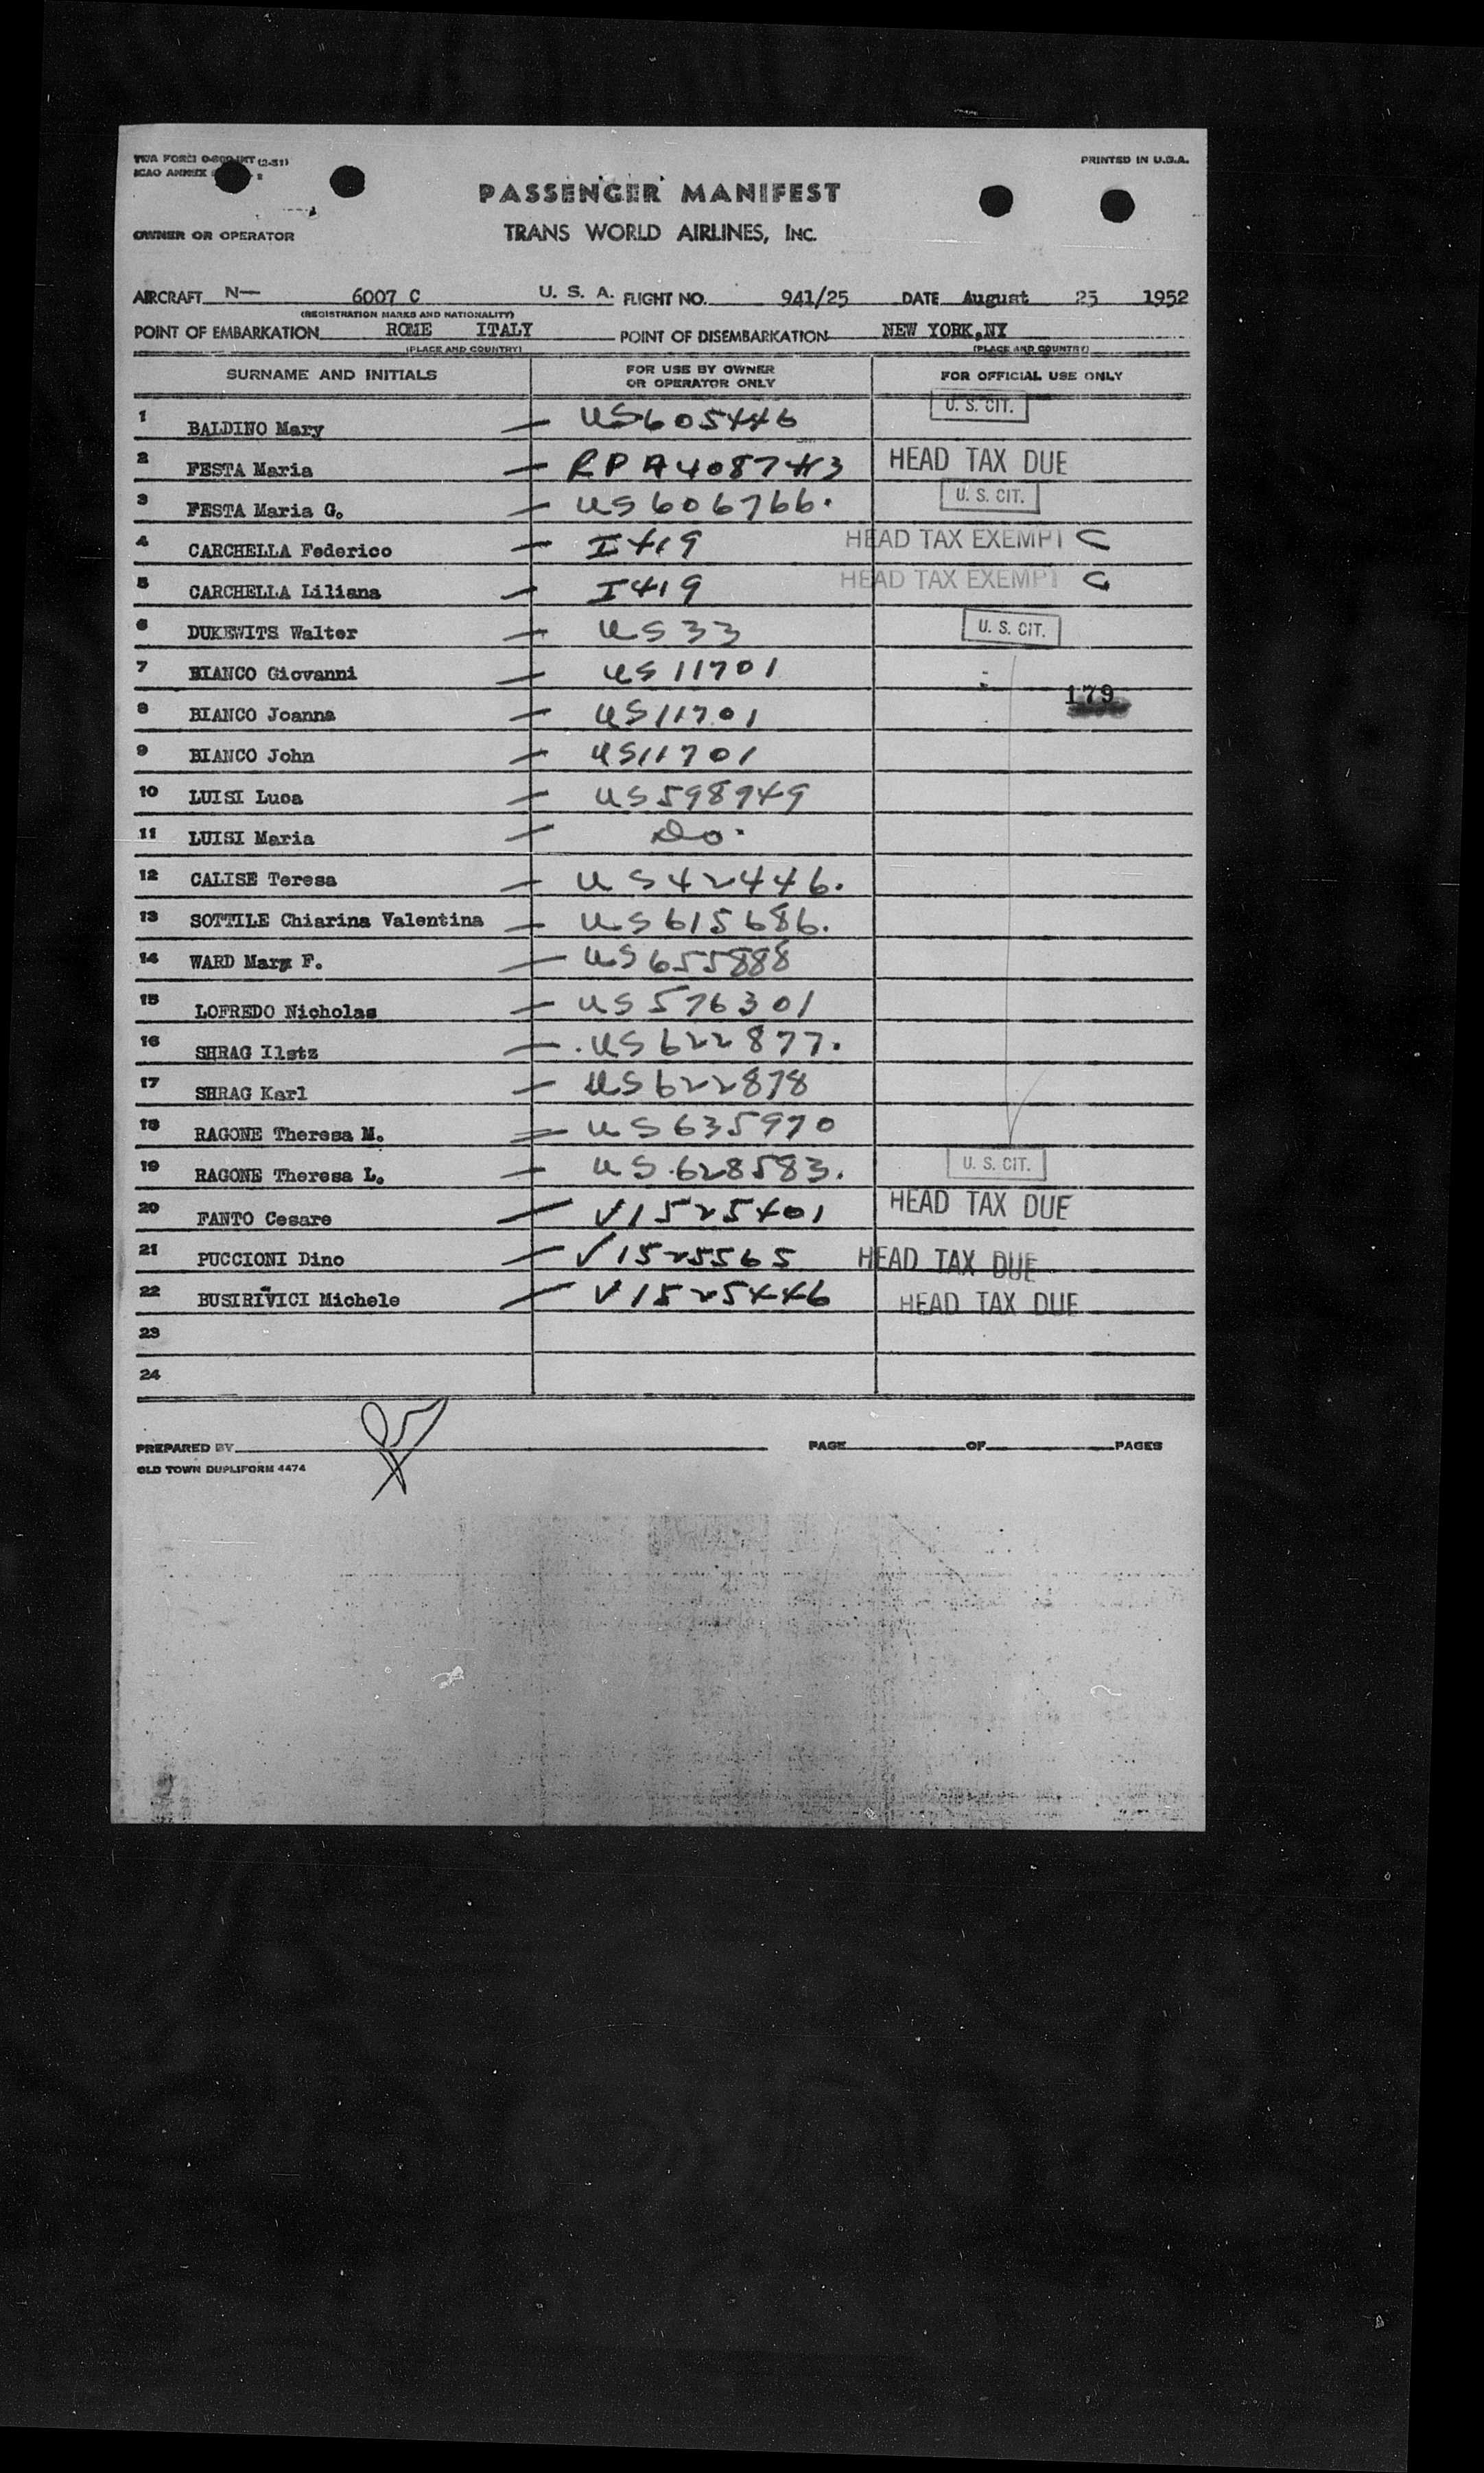 TWA FORM O-800-INT (2-51) PRINTED IN U.S.A.
ICAO ANNEX
PASSENGER MANIFEST
OWNER OR OPERATOR TRANS WORLD AIRLINES, INC.
AIRCRAFT N— 6007 C U. S. A. FLIGHT NO. 941/25 DATE August 25 1952
(REGISTRATION MARKS AND NATIONALITY)
POINT OF EMBARKATION ROME ITALY POINT OF DISEMBARKATION NEW YORK,NY
(PLACE AND COUNTRY) (PLACE AND COUNTRY)
SURNAME AND INITIALS FOR USE BY OWNER OR OPERATOR ONLY FOR OFFICIAL USE ONLY
1 BALDINO Mary — US605446 U. S. CIT.
2 FESTA Maria — RPA408743 HEAD TAX DUE
3 FESTA Maria G. — US606766. U. S. CIT.
4 CARCHELLA Federico — I419 HEAD TAX EXEMPT C
5 CARCHELLA Liliana — I419 HEAD TAX EXEMPT C
6 DUKEWITS Walter — US33 U. S. CIT.
7 BIANCO Giovanni — US11701
179
8 BIANCO Joanna — US11701
9 BIANCO John — US11701
10 LUISI Luca — US598949
11 LUISI Maria — Do.
12 CALISE Teresa — US42446.
13 SOTTILE Chiarina Valentina — US615686.
14 WARD Mary F. — US655888
15 LOFREDO Nicholas — US576301
16 SHRAG Ilstz — US622877.
17 SHRAG Karl — US622878
18 RAGONE Theresa M. — US635970
19 RAGONE Theresa L. — US628583. U. S. CIT.
20 FANTO Cesare — V1525401 HEAD TAX DUE
21 PUCCIONI Dino — V1525565 HEAD TAX DUE
22 BUSIRIVICI Michele — V1525446 HEAD TAX DUE
23
24
PREPARED BY PAGE OF PAGES
OLD TOWN DUPLIFORM 4474